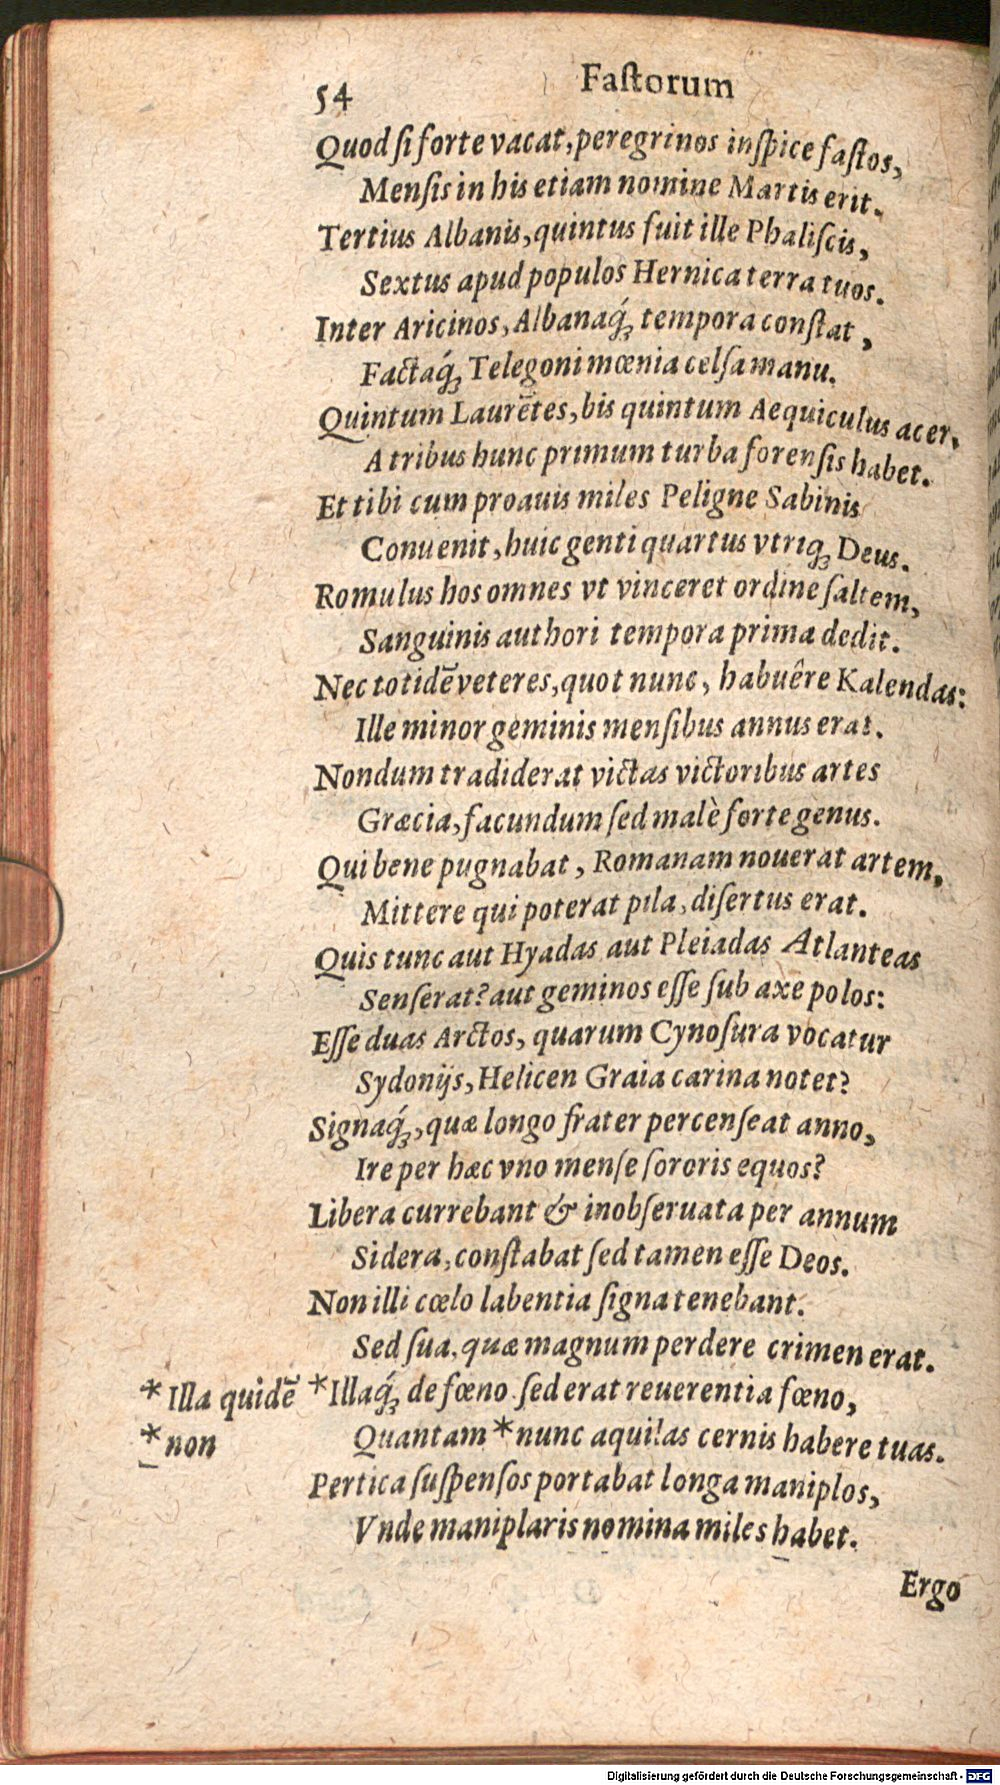 54
Faſtorum
Quod ſi forte vacat, peregrinos inſpice faſtos,
Menſis in his etiam nomine Martis erit.
Tertius Albanis, quintus fuit ille Phaliſcis,
Sextus apud populos Hernica terra tuos.
Inter Aricinos, Albanaq́ꝫ tempora conſtat,
Factaq́ꝫ Telegoni mœnia celſa manu.
Quintum Laurẽtes, bis quintum Aequiculus acer,
A tribus hunc primum turba forenſis habet.
Et tibi cum proauis miles Peligne Sabinis
Conuenit, huic genti quartus vtriqꝫ Deus.
Romulus hos omnes vt vinceret ordine ſaltem,
Sanguinis authori tempora prima dedit.
Nec totidẽ veteres, quot nunc, habuêre Kalendas:
Ille minor geminis menſibus annus erat.
Nondum tradiderat victas victoribus artes
Græcia, facundum ſed malè forte genus.
Qui bene pugnabat, Romanam nouerat artem,
Mittere qui poterat pila, diſertus erat.
Quis tunc aut Hyadas aut Pleiadas Atlanteas
Senſerat? aut geminos eſſe ſub axe polos:
Eſſe duas Arctos, quarum Cynoſura vocatur
Sydonijs, Helicen Graia carina notet?
Signaq́ꝫ, quæ longo frater percenſeat anno,
Ire per hæc vno menſe ſororis equos?
Libera currebant & inobſeruata per annum
Sidera, conſtabat ſed tamen eſſe Deos.
Non illi cœlo labentia ſigna tenebant.
Sed ſua, quæ magnum perdere crimen erat.
*Illa quidẽ *Illaq́ꝫ de fœno. ſed erat reuerentia fœno,
*non Quantam *nunc aquilas cernis habere tuas.
Pertica ſuſpenſos portabat longa maniplos,
Vnde maniplaris nomina miles habet.
Ergo
Digitalisierung gefördert durch die Deutsche Forschungsgemeinschaft - DFG